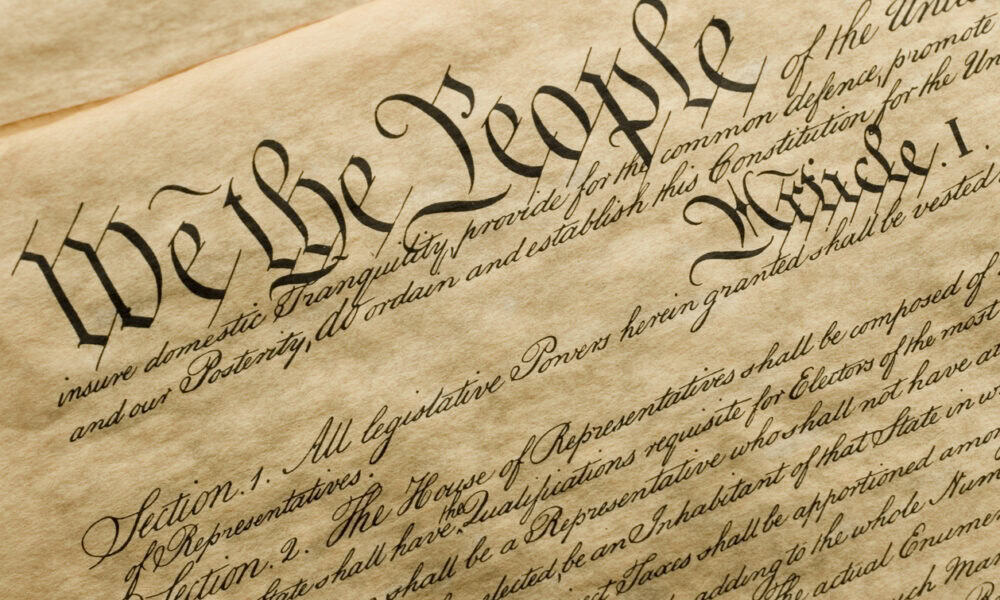 We the People of the Unit
insure domestic Tranquility, provide for the common defence, promote
and our Posterity, do ordain and establish this Constitution for the Un
Article. I.
Section. 1. All legislative Powers herein granted shall be vested
of Representatives.
Section. 2. The House of Representatives shall be composed of
State shall have the Qualifications requisite for Electors of the most
shall be a Representative who shall not have at
elected, be an Inhabitant of that State in w
ct Taxes shall be apportioned amon
adding to the whole Num
The actual Enumer
ch